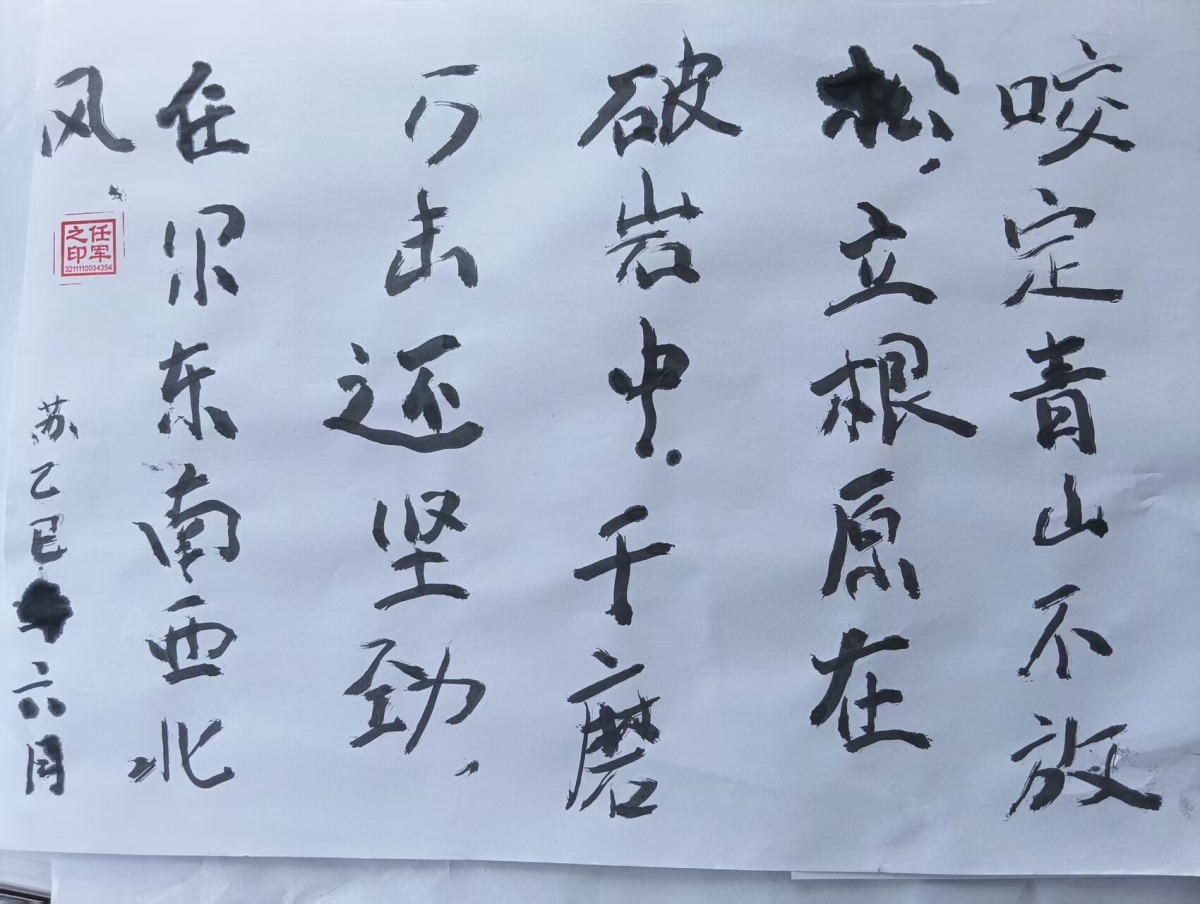 咬定青山不放
松、立根原在
破岩中.千磨
万击还坚劲、
任尔东南西北
风、
任军
之印
3211110034354
苏乙巳年六月